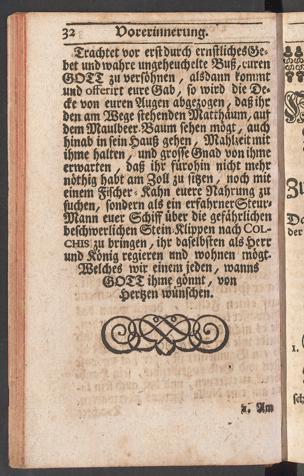 32 Vorerinnerung.
Trachtet vor erst durch ernstliches Ge-
bet und wahre ungeheuchelte Buß, euren
GOTT zu versöhnen, alsdann kommt
und offerirt eure Gab, so wird die De-
cke von euren Augen abgezogen, daß ihr
den am Wege stehenden Matthäum, auf
dem Maulbeer-Baum sehen mögt, auch
hinab in sein Hauß gehen, Mahlzeit mit
ihme halten, und grosse Gnad von ihme
erwarten, daß ihr fürohin nicht mehr
nöthig habt am Zoll zu sitzen, noch mit
einem Fischer-Kahn euere Nahrung zu
suchen, sondern als ein erfahrner Steur-
Mann euer Schiff über die gefährlichen
beschwerlichen Stein-Klippen nach COL-
CHIS zu bringen, ihr daselbsten als Herr
und König regieren und wohnen mögt.
Welches wir einem jeden, wanns
GOTT ihme gönnt, von
Hertzen wünschen.
1. Am